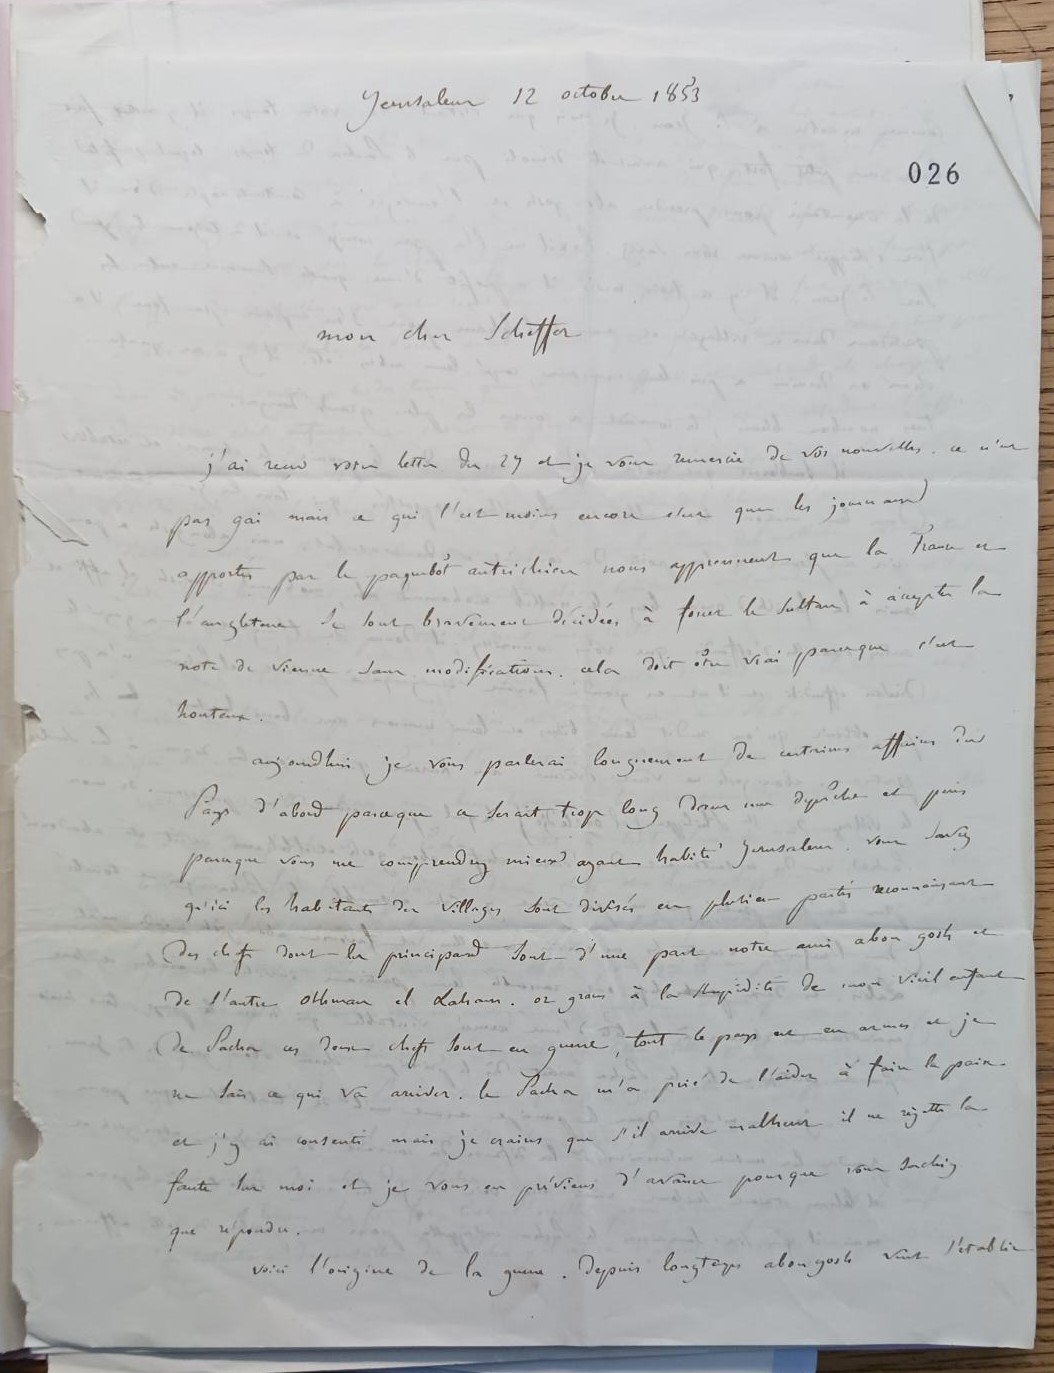 Jerusalem 12 octobre 1853
026
mon cher Scheffer
j'ai reçu votre lettre du 27 et je vous remercie de vos nouvelles. ce n'est
pas gai mais ce qui l'est moins encore c'est que les journaux
apportés par le paquebot autrichien nous apprennent que la France et
l'angleterre se sont bravement décidées à forcer le Sultan à accepter la
note de vienne sans modifications. cela doit être vrai parceque c'est
honteux.
aujourdhui je vous parlerai longuement de certaines affaires du
Pays d'abord parceque ce serait trop long dans une dépêche et puis
parceque vous me comprendrez mieux ayant habité Jerusalem. vous savez
qu'ici les habitants des villages sont divisés en plusieurs partis reconnaissant
des chefs dont les principaux sont d'une part notre ami abou gosh et
de l'autre Othman el Laham. or grace à la stupidité de mon vieil enfant
de Pacha ces deux chefs sont en guerre, tout le pays est en armes et je
ne sais ce qui va arriver. le Pacha m'a prié de l'aider à faire la paix
et j'y ai consenti mais je crains que s'il arrive malheur il ne rejette la
faute sur moi et je vous en préviens d'avance pourque vous sachiez
que répondre.
voici l'origine de la guerre. depuis longtemps abougosh veut s'établir